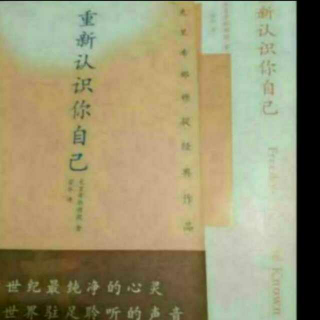 重新认识你自己
克里希那穆提经典作品
克里希那穆提 著
若水 译
世纪最纯净的心灵
世界驻足聆听的声音
新认识你自己
Known